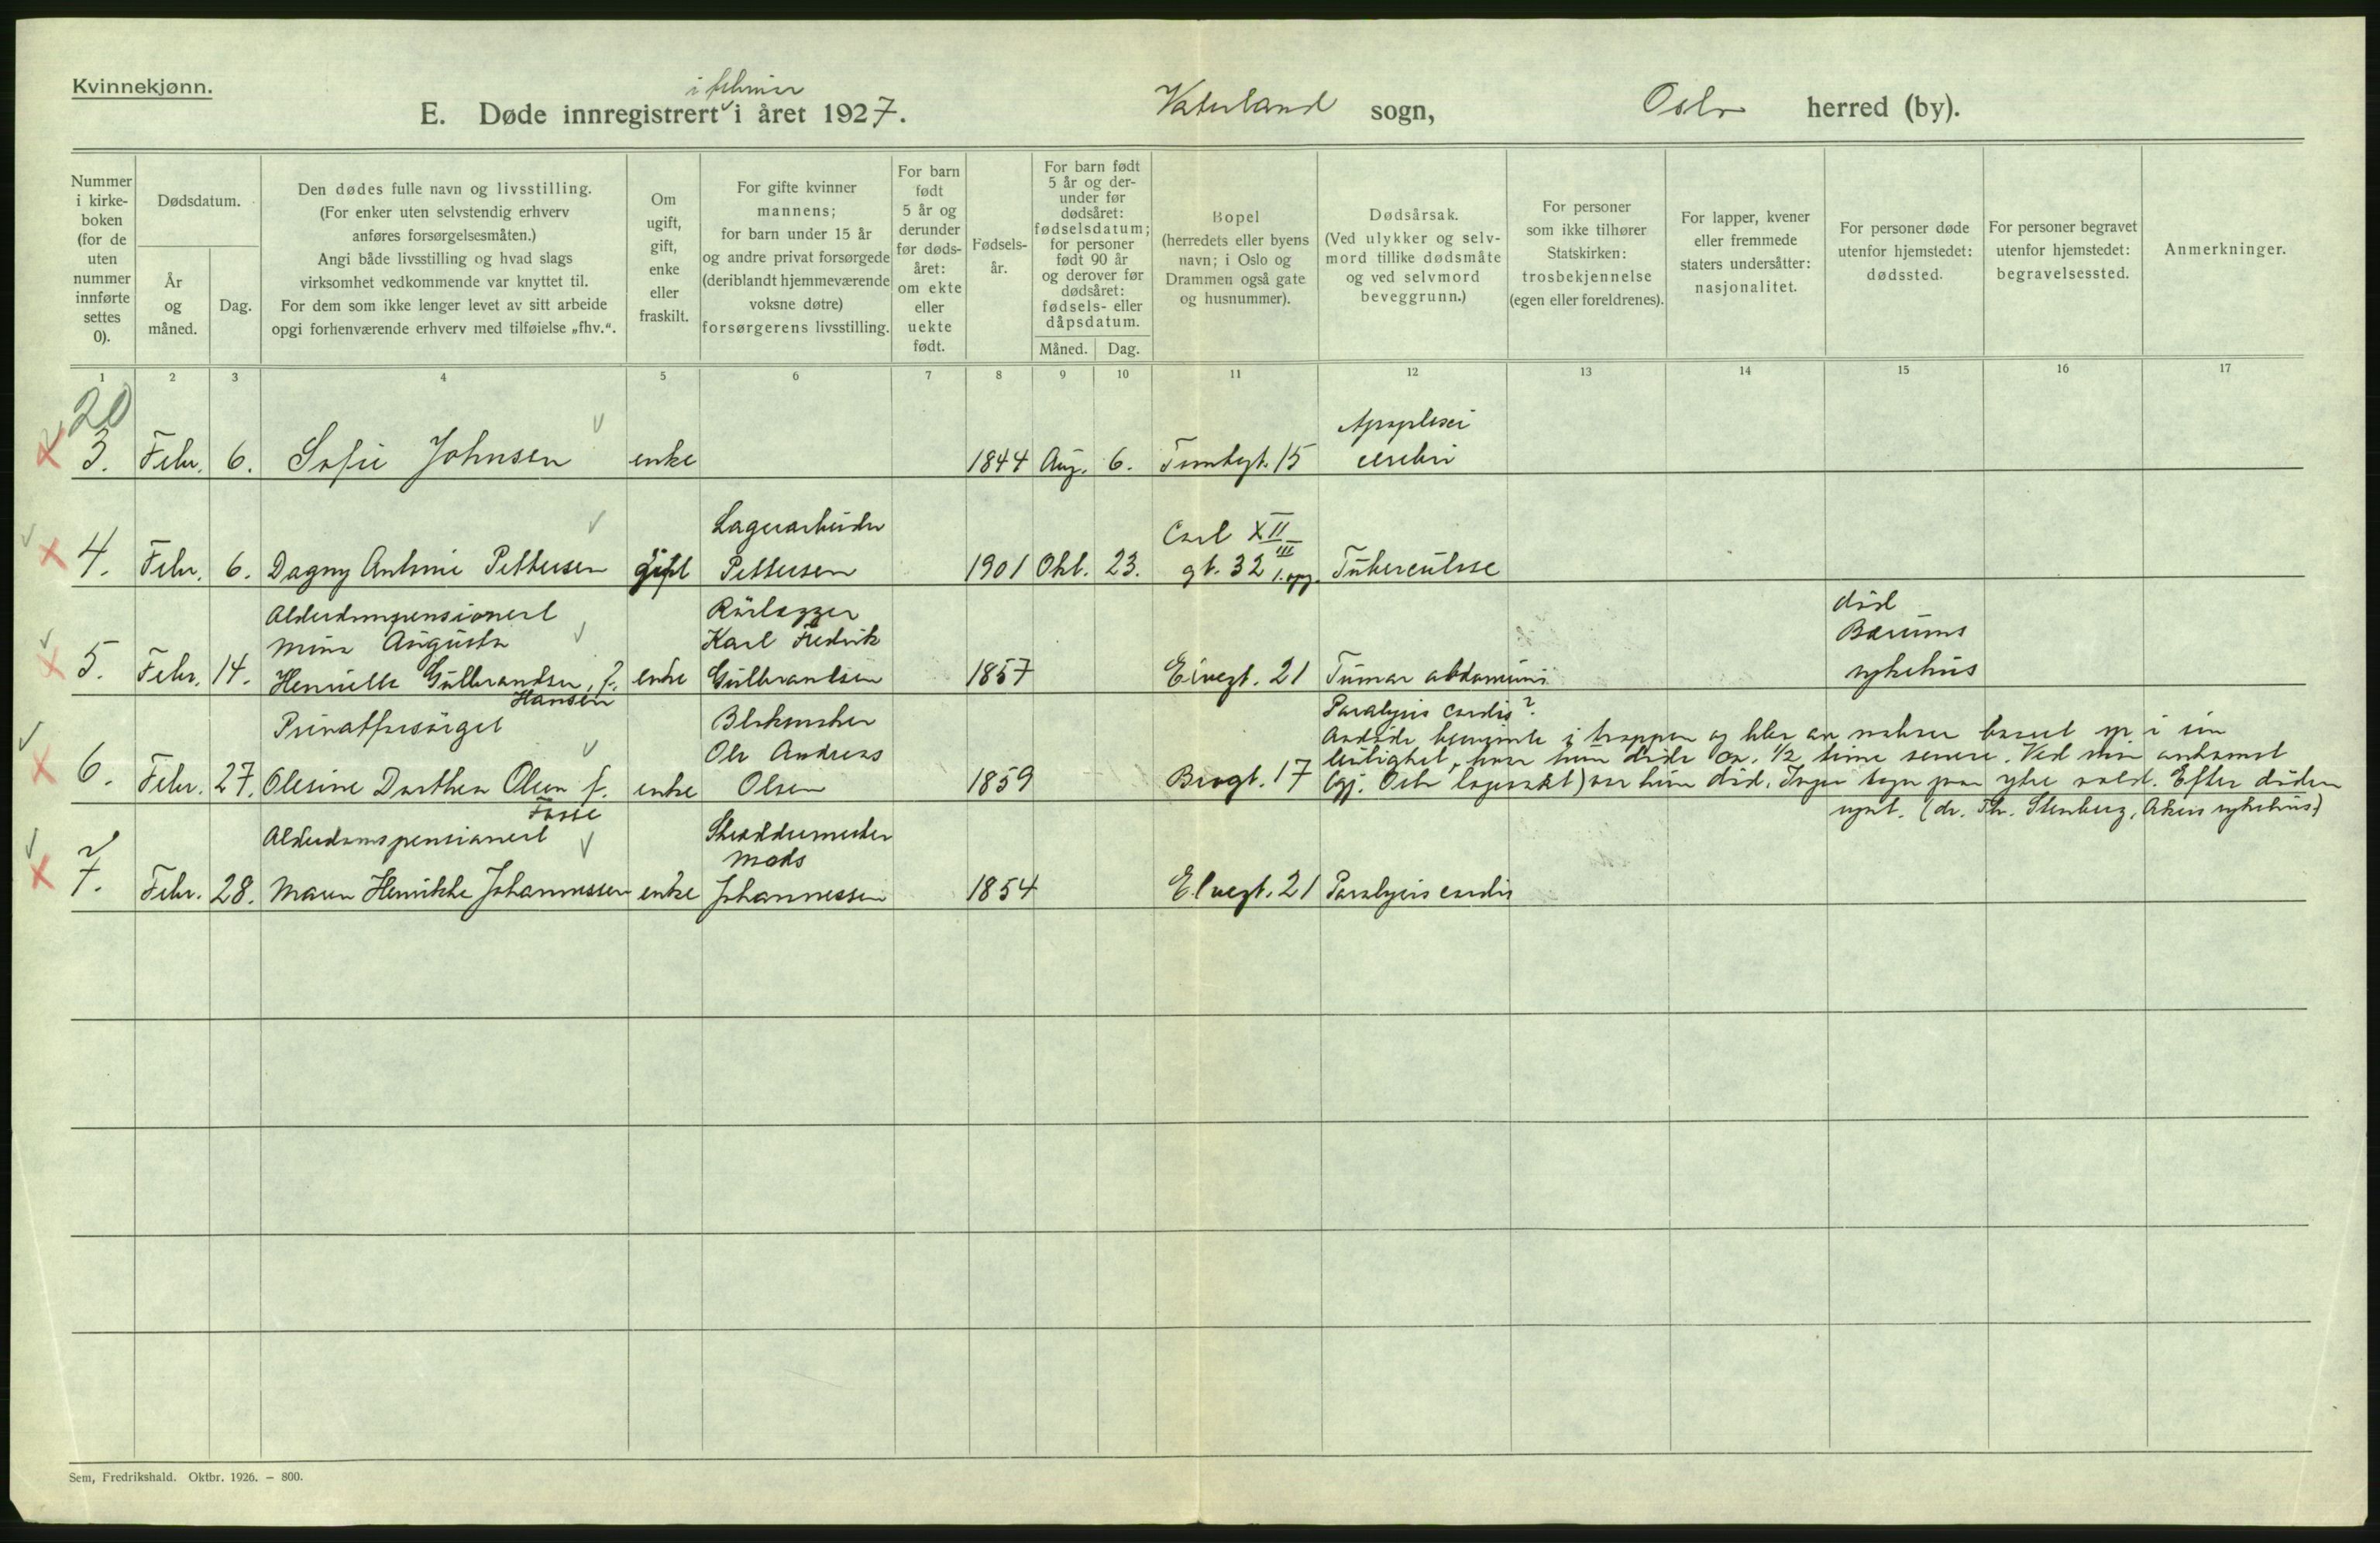 Kvinnekjønn.
i februar
E. Døde innregistrert i året 1927.
Vaterland sogn,
Oslo herred (by).
Nummer i kirke-boken (for de uten nummer innførte settes 0).
Dødsdatum.
År og måned.
Dag.
Den dødes fulle navn og livsstilling.
(For enker uten selvstendig erhverv
anføres forsørgelsesmåten.)
Angi både livsstilling og hvad slags
virksomhet vedkommende var knyttet til.
For dem som ikke lenger levet av sitt arbeide
opgi forhenværende erhverv med tilføielse „fhv.“.
Om ugift, gift, enke eller fraskilt.
For gifte kvinner
mannens;
for barn under 15 år
og andre privat forsørgede
(deriblandt hjemmeværende
voksne døtre)
forsørgerens livsstilling.
For barn født 5 år og derunder før døds-året: om ekte eller uekte født.
Fødsels-år.
For barn født 5 år og der-under før dødsåret: fødselsdatum; for personer født 90 år og derover før dødsåret: fødsels- eller dåpsdatum.
Måned.
Dag.
Bopel
(herredets eller byens
navn; i Oslo og
Drammen også gate
og husnummer).
Dødsårsak.
(Ved ulykker og selv-
mord tillike dødsmåte
og ved selvmord
beveggrunn.)
For personer
som ikke tilhører
Statskirken:
trosbekjennelse
(egen eller foreldrenes).
For lapper, kvener
eller fremmede
staters undersåtter:
nasjonalitet.
For personer døde
utenfor hjemstedet:
dødssted.
For personer begravet
utenfor hjemstedet:
begravelsessted.
Anmerkninger.
1 2 3 4 5 6 7 8 9 10 11 12 13 14 15 16 17
20
Apoplexi
3. Febr. 6. Sofie Johnsen enke 1844 Aug. 6. Tomtegt. 15 cerebri
Lagerarbeider
Carl XII
4. Febr. 6. Dagny Antonie Pettersen gift Pettersen 1901 Okt. 23. gt. 32 III 1. opg. Tuberculose
Alderdomspensionert Rörlegger död
Mina Augusta Karl Fredrik Bærums
5. Febr. 14. Henriette Gulbrandsen, f. enke Gulbrandsen 1857 Elvegt. 21 Tumor abdominis sykehus
Hansen
Privatforsörget Blikkensler Paralysis cordis?
Ole Andreas
Andöde besvimte i trappen og blev av naboer baaret op i sin
leilighet, hvor hun döde ca. 1/2 time senere. Ved min ankomst
6. Febr. 27. Olesine Dorthea Olsen f. enke Olsen 1859 Brogt. 17 (gj. Oslo legevakt) var hun död. Ingen tegn paa ytre vold. Efter döden
Fosse
synt. (dr. Th. Stenberg, Akers sykehus)
Alderdomspensionert Skreddermester
Mads
7. Febr. 28. Maren Henrikke Johannessen enke Johannessen 1854 Elvegt. 21 Paralysis cordis
Sem, Fredrikshald. Oktbr. 1926. – 800.